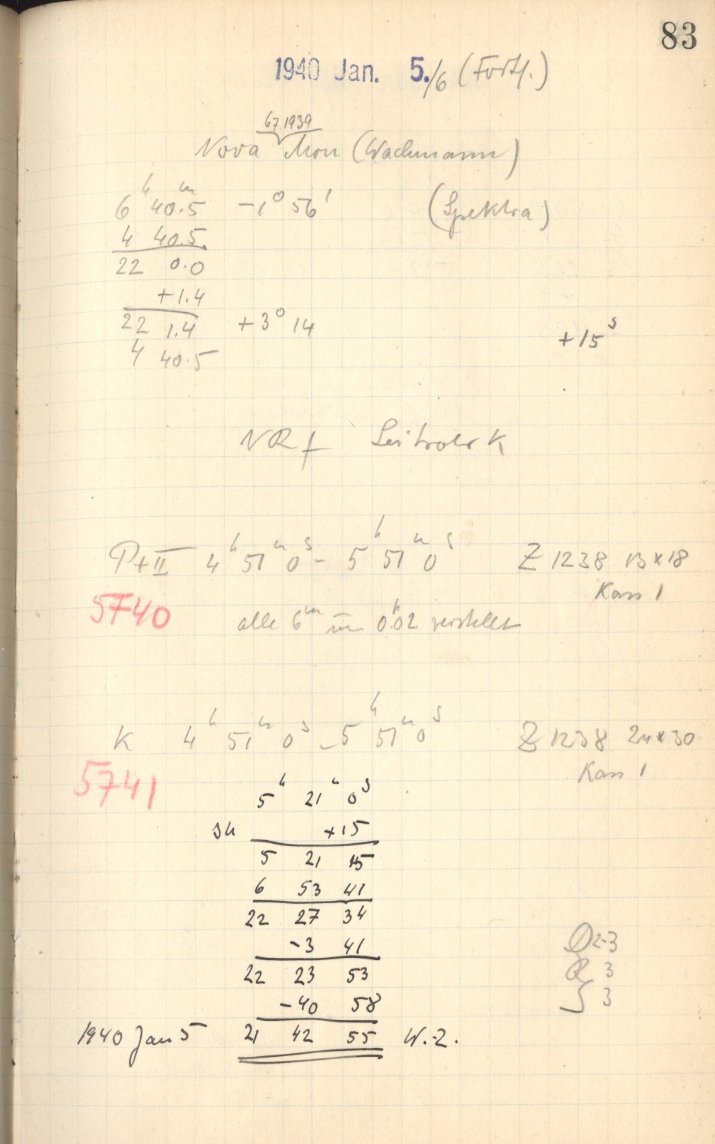 83
1940 Jan. 5./6 (Forts.)
67.1939
Nova Mon (Wachmann)
6ʰ 40.5ᵐ -1° 56' (Spektra)
4 40.5
22 0.0
+1.4
22 1.4 +3° 14
4 40.5
+15ˢ
Leitrohr K
P+II 4ʰ 51ᵐ 0ˢ - 5ʰ 51ᵐ 0ˢ Z 1238 13×18
Kass 1
5740 alle 6ᵐ um 0ʰ.02 verstellt
K 4ʰ 51ᵐ 0ˢ - 5ʰ 51ᵐ 0ˢ Z 1238 24×30
Kass 1
5741
5ʰ 21ᵐ 0ˢ
+15
5 21 15
6 53 41
22 27 34
-3 41
22 23 53
-40 58
D 2-3
R 3
S 3
1940 Jan 5 21 42 55 W.Z.